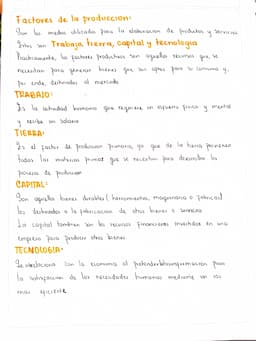 Factores de la produccion:
Son los medios utilizados para la elaboracion de productos y servicios
Estos son Trabajo tierra, capital y tecnologia
Basicamente, los factores productivos son aquellos recursos que se
necesitan para generar bienes que son aptos para su consumo y,
por ende, destinados al mercado
TRABAJO:
Es la actividad humana que requiere un esfuerzo fisico y mental
y recibe un salario
TIERRA:
Es el factor de produccion primario, ya que de la tierra provienen
todas las materias primas que se necesitan para desarrollar los
procesos de produccion
CAPITAL:
Son aquellos bienes durables (herramientas, maquinaria o fabricas)
los destinados a la fabricacion de otros bienes o servicios
La capital tambien son los recursos financieros invertidos en una
empresa para producir otros bienes.
TECNOLOGIA:
Se relaciona con la economia al pretender la transformacion para
la satisfaccion de las necesidades humanas mediante un uso
mas eficiente